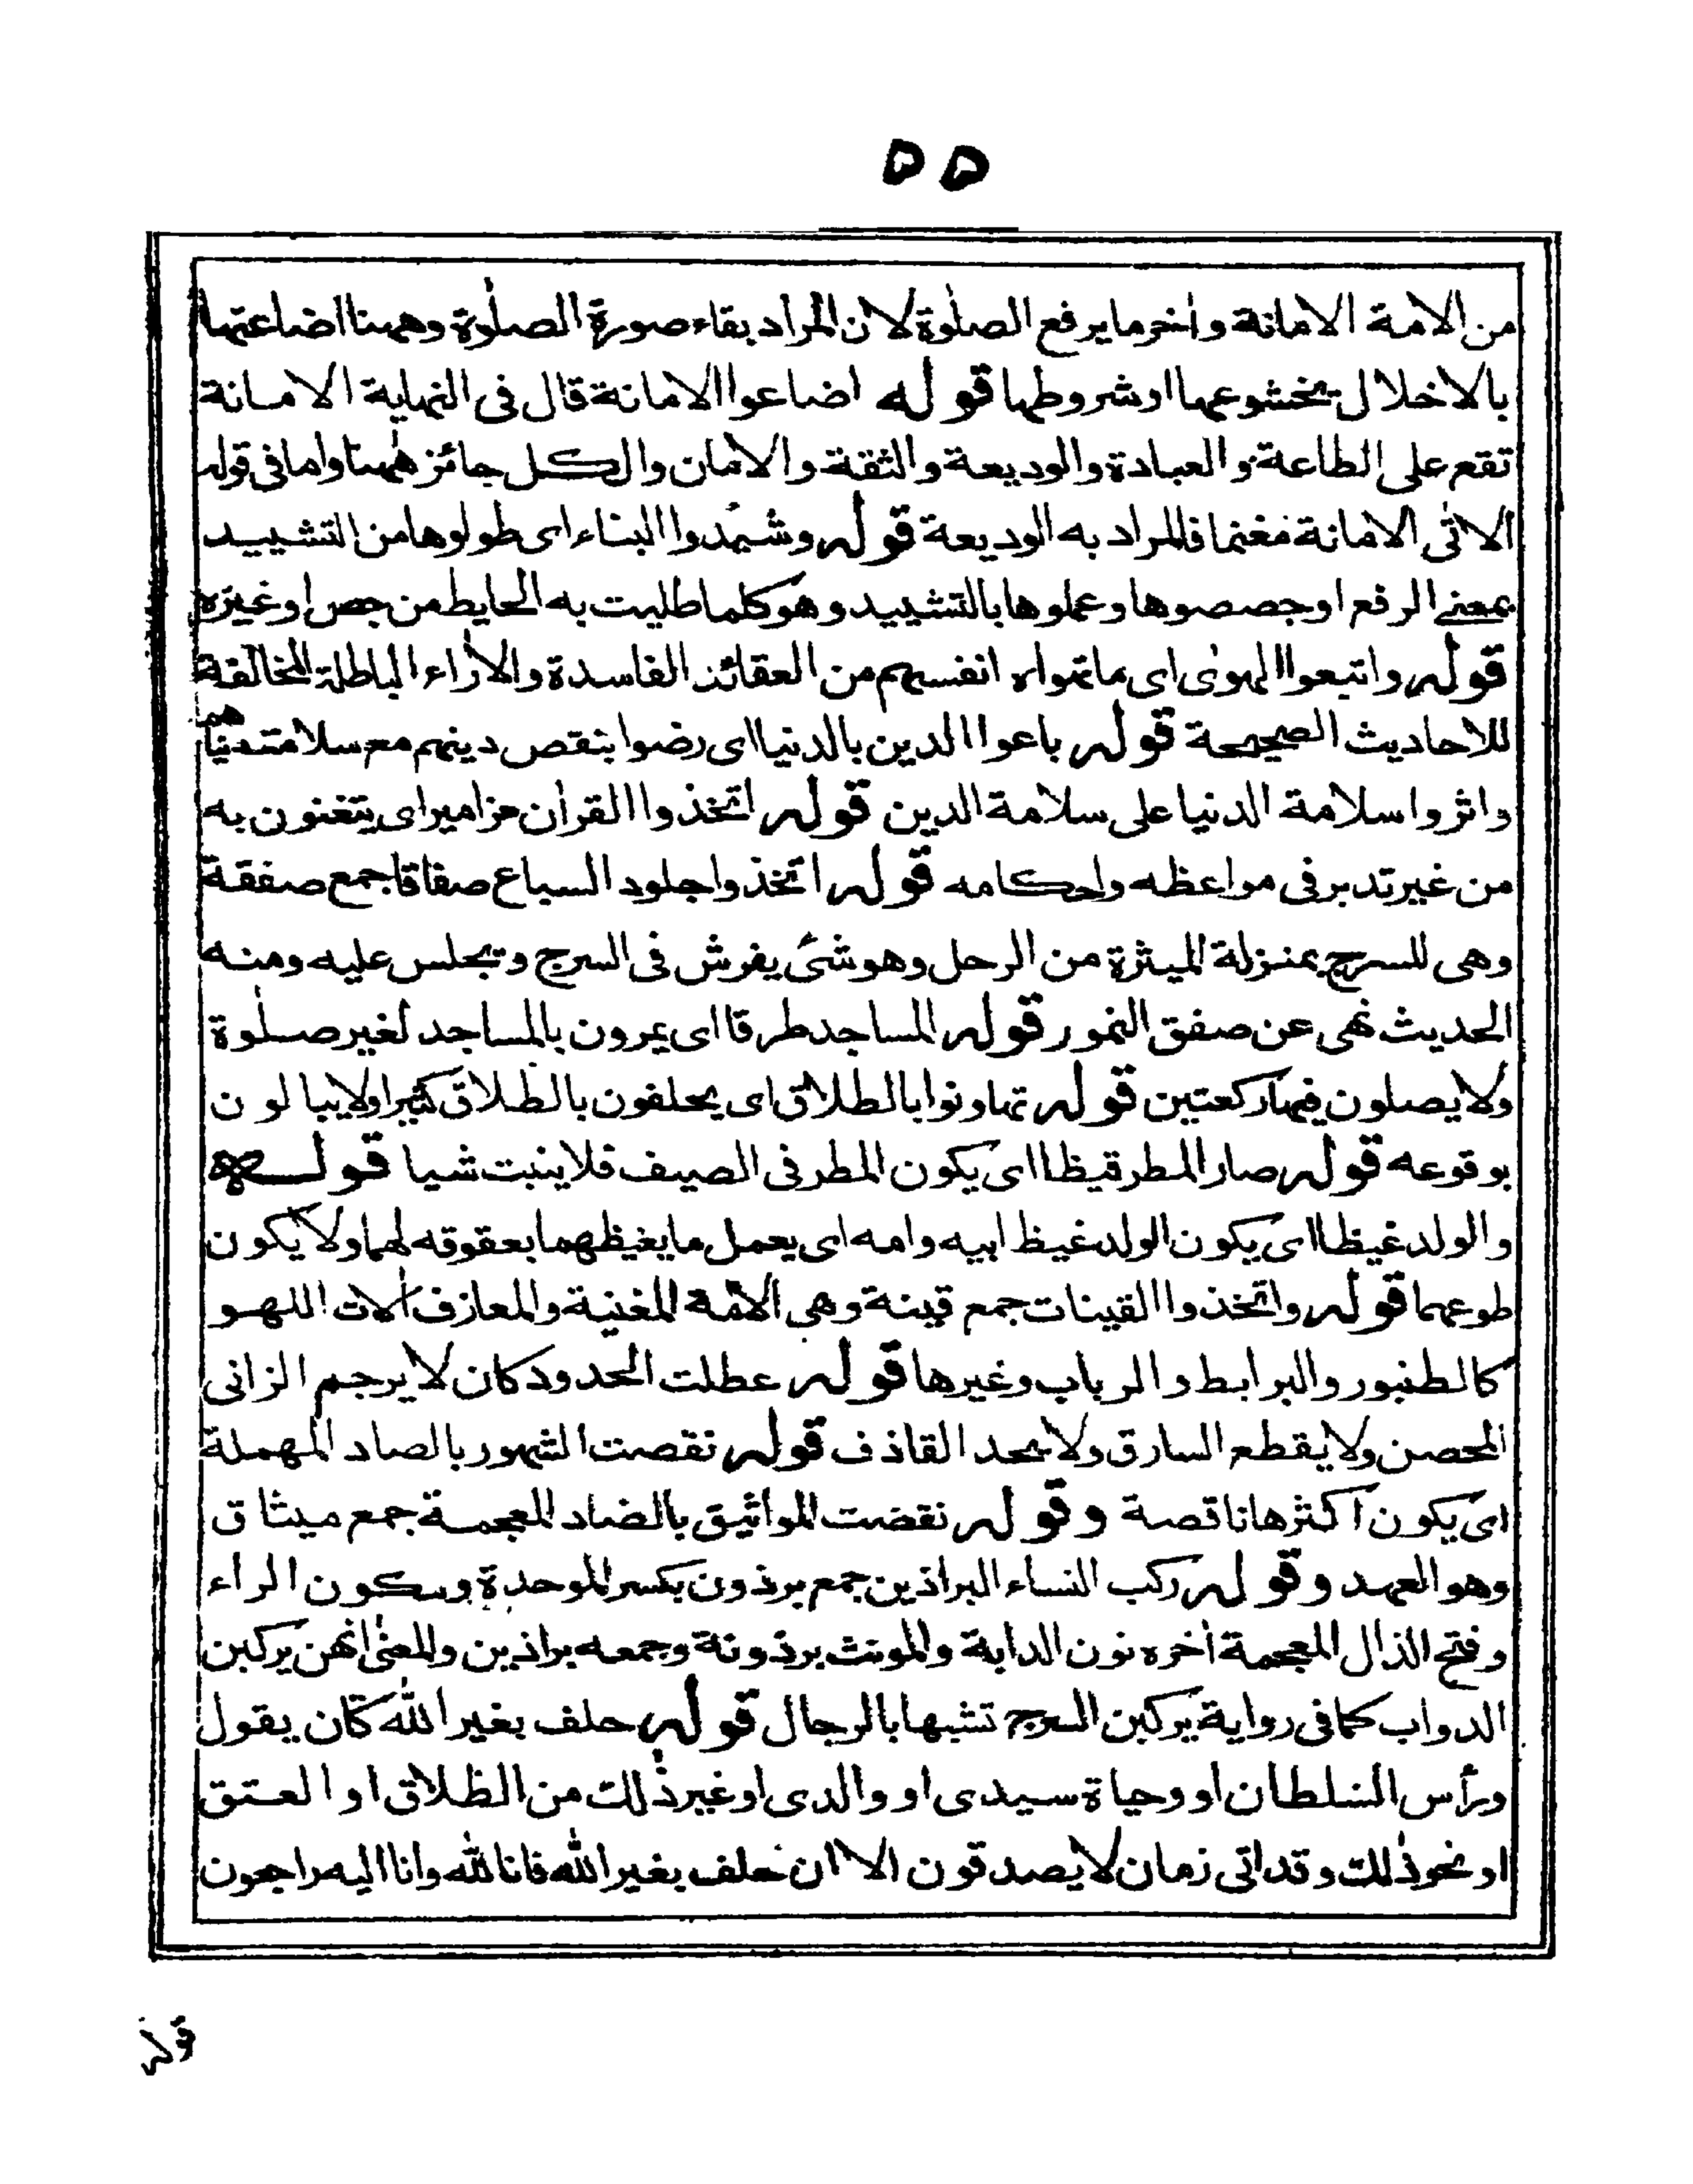 ۵۵
من الامة الامانة واٰخر ما يرفع الصلٰوة لان المراد بقاء صورة الصلٰوة وههنا اضاعتها
بالاخلال بخشوعها او شروطها قوله اضاعوا الامانة قال فى النهاية الامانة
تقع على الطاعة والعبادة والوديعة والثقة والامان والكل جائز هٰهنا واما فى قوله
الاٰتى الامانة مغنما فالمراد به الوديعة قوله وشيّدوا البناء اى طولوها من التشييد
بمعنى الرفع او جصصوها وعملوها بالتشييد وهو كلما طليت به الحايط من جص او غيره
قوله واتبعوا الهوٰى اى ما تهواه انفسهم من العقائد الفاسدة والاٰراء الباطلة المخالفة
للاحاديث الصحيحة قوله باعوا الدين بالدنيا اى رضوا بنقص دينهم مع سلامة دنياهم
واثروا سلامة الدنيا على سلامة الدين قوله اتخذوا القراٰن مزامير اى يتغنون به
من غير تدبر فى مواعظه واحكامه قوله اتخذوا جلود السباع صفاقا جمع صفقة
وهى للسرج بمنزلة الميثرة من الرحل وهو شئ يفرش فى السرج وتجلس عليه ومنه
الحديث نهى عن صفق النمور قوله المساجد طرقا اى يمرون بالمساجد لغير صلٰوة
ولا يصلون فيها ركعتين قوله تهاونوا بالطلاق اى يحلفون بالطلاق كثيرا ولا يبالون
بوقوعه قوله صار المطر قيظا اى يكون المطر فى الصيف فلا ينبت شيا قوله
والولد غيظا اى يكون الولد غيظ ابيه وامه اى يعمل ما يغيظهما بعقوقه لهما ولا يكون
طوعهما قوله واتخذوا القينات جمع قينة وهى الامة المغنية والمعازف اٰلات اللهو
كالطنبور والبرابط والرباب وغيرها قوله عطلت الحدود كان لا يرجم الزانى
المحصن ولا يقطع السارق ولا يحد القاذف قوله نقصت الشهور بالصاد المهملة
اى يكون اكثرها ناقصة وقوله نقضت المواثيق بالضاد المعجمة جمع ميثاق
وهو العهد وقوله ركب النساء البراذين جمع برذون بكسر الموحدة وسكون الراء
وفتح الذال المعجمة اٰخره نون الدابة والمونث برذونة وجمعه براذين والمعنٰى انهن يركبن
الدواب كما فى رواية يركبن السرج تشبها بالرجال قوله حلف بغير الله كان يقول
ورأس السلطان او وحياة سيدى او والدى او غير ذٰلك من الطلاق او العتق
او نحو ذٰلك وقد اتى زمان لا يصدقون الا ان حلف بغير الله فانا لله وانا اليه راجعون
قوله